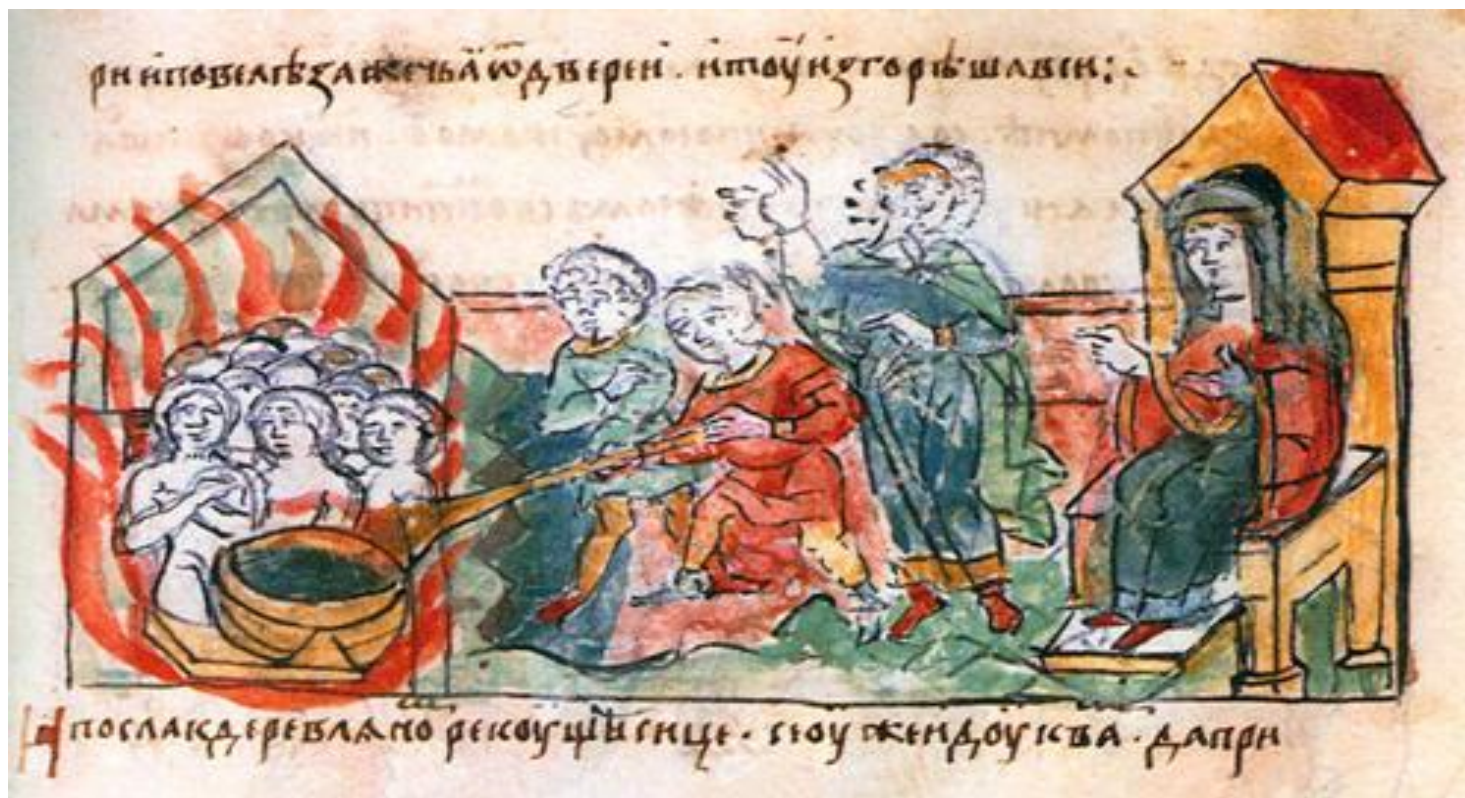 ри и повелѣ зажечьѧ ѿ двереи . и тоу изгорѣша вси :.
И посла к деревлѧно рекоущи сице . се оуже идоу к ва . да при